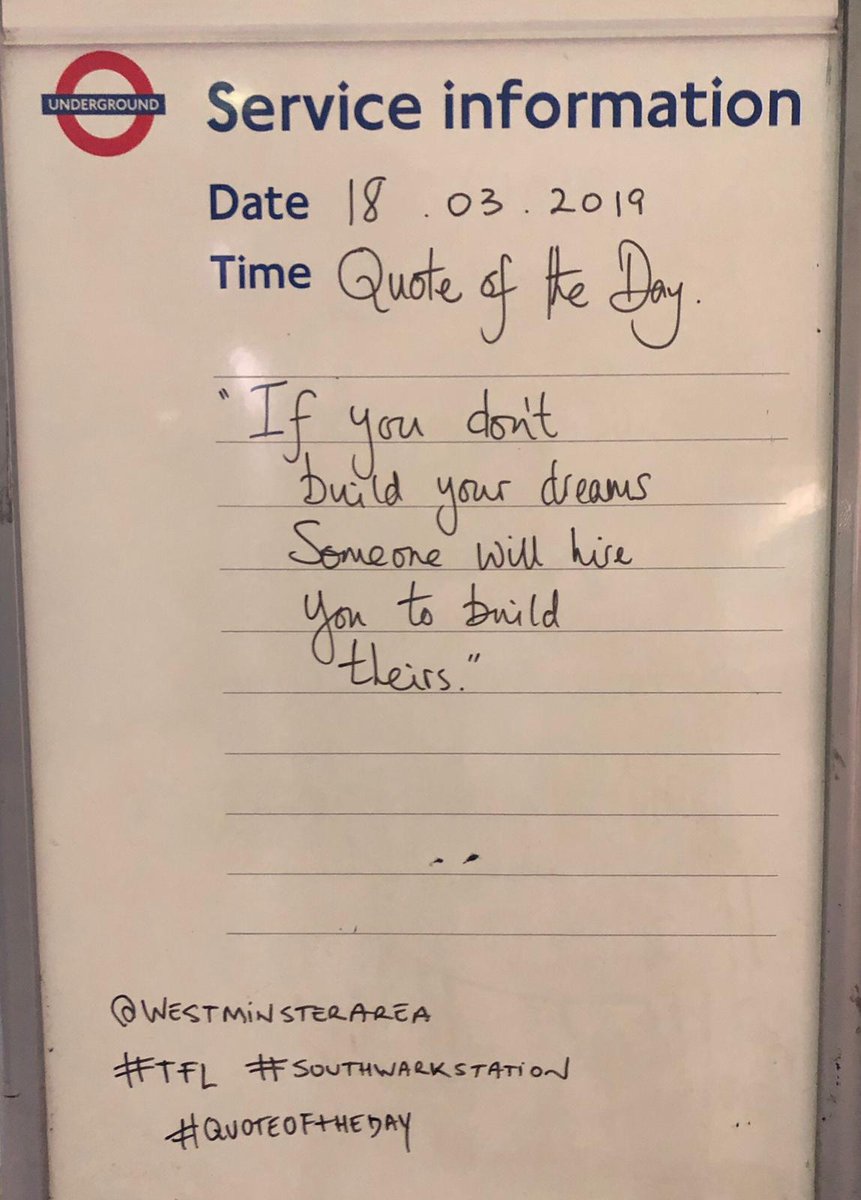 UNDERGROUND
Service information
Date 18.03.2019
Time Quote of the Day.
"If you don't
build your dreams
Someone will hire
you to build
theirs."
@WESTMINSTERAREA
#TFL #SOUTHWARKSTATION
#QUOTEOFTHEDAY